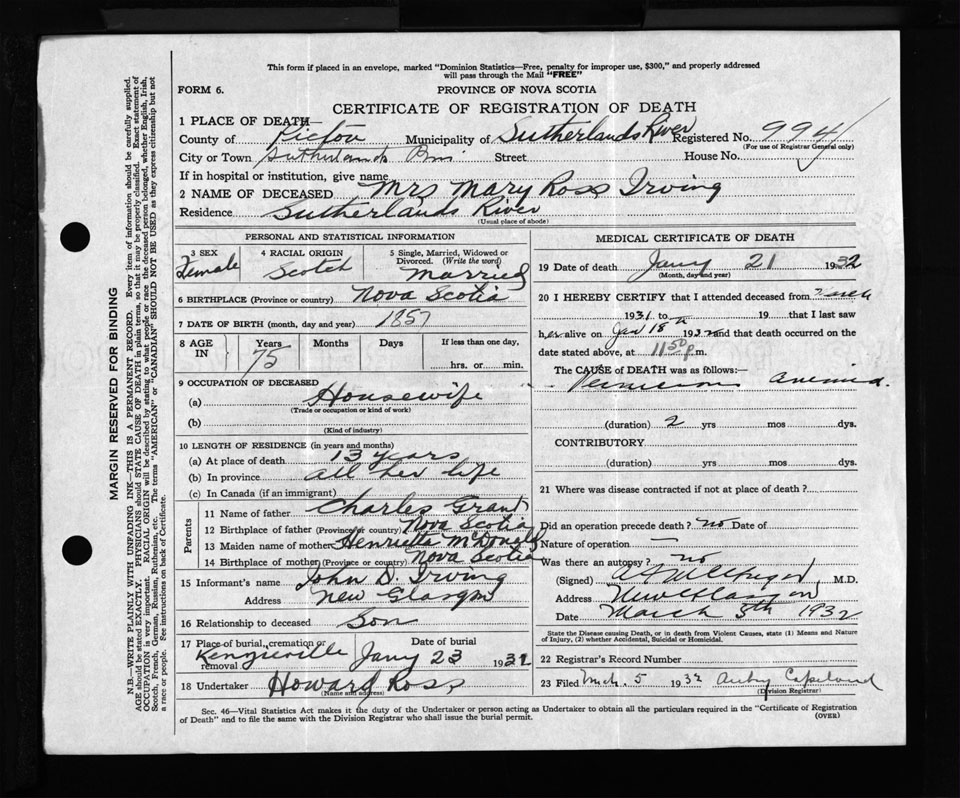 This form if placed in an envelope, marked "Dominion Statistics—Free, penalty for improper use, $300," and properly addressed
will pass through the Mail "FREE"
FORM 6.
PROVINCE OF NOVA SCOTIA
CERTIFICATE OF REGISTRATION OF DEATH
1 PLACE OF DEATH—
County of Pictou Municipality of Sutherlands River Registered No. 994
(For use of Registrar General only)
City or Town Sutherlands Street House No.
If in hospital or institution, give name
2 NAME OF DECEASED Mrs Mary Ross Irving
Residence Sutherlands River
(Usual place of abode)
PERSONAL AND STATISTICAL INFORMATION
3 SEX Female
4 RACIAL ORIGIN Scotch
5 Single, Married, Widowed or Divorced. (Write the word) Married
6 BIRTHPLACE (Province or country) Nova Scotia
7 DATE OF BIRTH (month, day and year) 1857
8 AGE IN Years 75 Months Days If less than one day, hrs. or min.
9 OCCUPATION OF DECEASED
(a) Housewife
(Trade or occupation or kind of work)
(b)
(Kind of industry)
10 LENGTH OF RESIDENCE (in years and months)
(a) At place of death 13 years
(b) In province all her life
(c) In Canada (if an immigrant)
Parents
11 Name of father Charles Grant
12 Birthplace of father (Province or country) Nova Scotia
13 Maiden name of mother Henrietta McDonald
14 Birthplace of mother (Province or country) Nova Scotia
15 Informant's name John D. Irving
Address New Glasgow
16 Relationship to deceased Son
17 Place of burial, cremation or removal Kenzieville Date of burial Jany 23 1932
18 Undertaker Howard Ross
(Name and address)
MEDICAL CERTIFICATE OF DEATH
19 Date of death Jany 21 1932
(Month, day and year)
20 I HEREBY CERTIFY that I attended deceased from
1931 to 19 that I last saw
her alive on Jan 18th 1932 and that death occurred on
date stated above, at 11 50 p.m.
The CAUSE of DEATH was as follows:—
Pernicious anemia.
(duration) 2 yrs mos dys.
CONTRIBUTORY
(duration) yrs mos dys.
21 Where was disease contracted if not at place of death?
Did an operation precede death? no Date of
Nature of operation —
Was there an autopsy? no
(Signed) M.D.
Address New Glasgow
Date March 5th 1932
State the Disease causing Death, or in death from Violent Causes, state (1) Means and Nature
of Injury, (2) whether Accidental, Suicidal or Homicidal.
22 Registrar's Record Number
23 Filed Mch. 5 1932 Copeland
(Division Registrar)
Sec. 46—Vital Statistics Act makes it the duty of the Undertaker or person acting as Undertaker to obtain all the particulars required in the "Certificate of Registration
of Death" and to file the same with the Division Registrar who shall issue the burial permit.
(OVER)
MARGIN RESERVED FOR BINDING
N.B.—WRITE PLAINLY WITH UNFADING INK—THIS IS A PERMANENT RECORD. Every item of information should be carefully supplied.
AGE should be stated EXACTLY. PHYSICIANS should STATE CAUSE OF DEATH in plain terms, so that it may be properly classified. Exact statement of
OCCUPATION is very important. RACIAL ORIGIN will be described by stating to what people or race the deceased person belonged, whether English, Irish,
Scotch, French, German, Russian, Ruthenian, etc. The terms "AMERICAN" or "CANADIAN" SHOULD NOT BE USED as they express citizenship but not
a race or people. See instructions on back of Certificate.